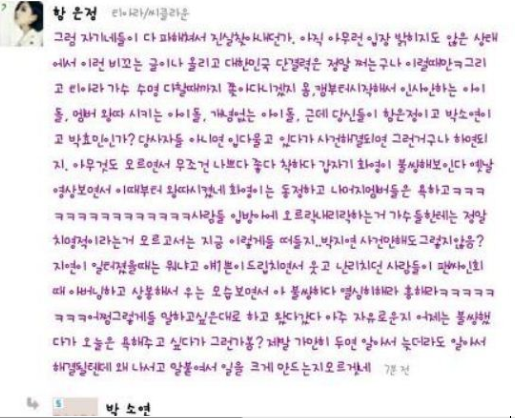 함 은정 티아라/씨클라운
그럼 자기네들이 다 파헤쳐서 진실찾아내던가. 아직 아무런 입장 밝히지도 않은 상태
에서 이런 비꼬는 글이나 올리고 대한민국 단결력은 정말 쩌는구나 이럴때만ㅋ그리
고 티아라 가수 수명 다할때까지 쫓아다니겠지 뭐,캠부터시작해서 인사안하는 아이
돌, 멤버 왕따 시키는 아이돌, 개념없는 아이돌, 근데 당신들이 함은정이고 박소연이
고 박효민인가? 당사자들 아니면 입다물고 있다가 사건해결되면 그런거구나 하면되
지. 아무것도 모르면서 무조건 나쁘다 좋다 착하다 갑자기 화영이 불쌍해보인다 옛날
영상보면서 이때부터 왕따시켰네 화영이는 동정하고 나머지멤버들은 욕하고ㅋㅋㅋ
ㅋㅋㅋㅋㅋㅋㅋㅋㅋㅋㅋㅋ사람들 입방아에 오르락내리락하는거 가수들한테는 정말
치명적이라는거 모르고서는 지금 이렇게들 떠들지..박지연 사건만해도그렇지않음?
지연이 일터졌을때는 뭐냐고 얘1뿐이드립치면서 웃고 난리치던 사람들이 팬싸인회
때 아버님하고 상봉해서 우는 모습보면서 아 불쌍하다 열심히해라 흥해라ㅋㅋㅋㅋㅋ
ㅋㅋㅋ어쩜그렇게들 말하고싶은대로 하고 왔다갔다 아주 자유로운지 어제는 불쌍했
다가 오늘은 욕해주고 싶다가 그런가봄? 제발 가만히 두면 알아서 늦더라도 알아서
해결될텐데 왜 나서고 말붙여서 일을 크게 만드는지모르겠네 7분 전
박 소연